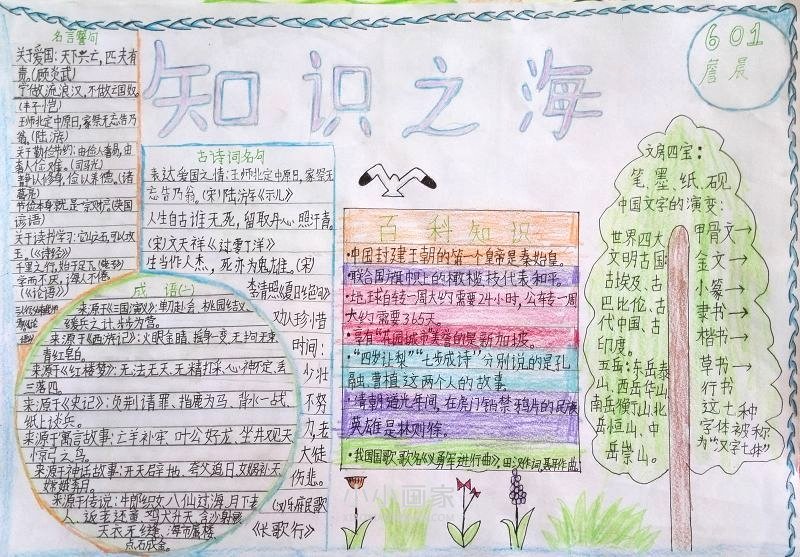 知识之海
601
詹晨
名言警句
关于爱国:天下兴亡,匹夫有
责。(顾炎武)
宁做流浪汉,不做亡国奴。
(丰子恺)
王师北定中原日,家祭无忘告乃
翁。(陆游)
关于勤俭节约:由俭入奢易,由
奢入俭难。(司马光)
静以修身,俭以养德。(诸
葛亮)
节俭本身就是一宗财产。(英国
谚语)
关于读书学习:它山之石,可以攻
玉。《诗经》
千里之行,始于足下。(老子)
学而不厌,诲人不倦。
(《论语》)
古诗词名句
表达爱国之情:王师北定中原日,家祭无
忘告乃翁。(宋)陆游《示儿》
人生自古谁无死,留取丹心照汗青。
(宋)文天祥《过零丁洋》
生当作人杰,死亦为鬼雄。(宋)
李清照《夏日绝句》
劝人珍惜
时间:
少壮
不努
力,老
大徒
伤悲。
(汉)乐府民歌
《长歌行》
成语(二)
来源于《三国演义》:单刀赴会、桃园结义、
缓兵之计、步步为营。
来源于《西游记》:火眼金睛、摇身一变、无拘无束、
青红皂白。
来源于《红楼梦》:无法无天、无精打采、心神不定、丢
三落四。
来源于《史记》:负荆请罪、指鹿为马、背水一战、
纸上谈兵。
来源于寓言故事:亡羊补牢、叶公好龙、坐井观天、
惊弓之鸟。
来源于神话故事:开天辟地、夸父追日、女娲补天、
嫦娥奔月。
来源于传说:牛郎织女、八仙过海、月下老
人、返老还童、鸡犬升天、含沙射影、
天衣无缝、海市蜃楼、
点石成金。
百科知识
·中国封建王朝的第一个皇帝是秦始皇。
·联合国旗帜上的橄榄枝代表和平。
·地球自转一周大约需要24小时,公转一周
大约需要365天。
·享有“花园城市”美誉的是新加坡。
·“四岁让梨”“七步成诗”分别说的是孔
融、曹植这两个人的故事。
·清朝道光年间,在虎门销禁鸦片的民族
英雄是林则徐。
·我国国歌歌名《义勇军进行曲》,田汉作词,聂耳作曲。
文房四宝:
笔、墨、纸、砚
中国文字的演变:
世界四大
文明古国:
古埃及、古
巴比伦、古
代中国、古
印度。
五岳:东岳泰
山、西岳华山、
南岳衡山、北
岳恒山、中
岳嵩山。
甲骨文→
金文→
小篆→
隶书→
楷书→
草书→
行书
这七种
字体被称
为“汉字七体”
小小画家